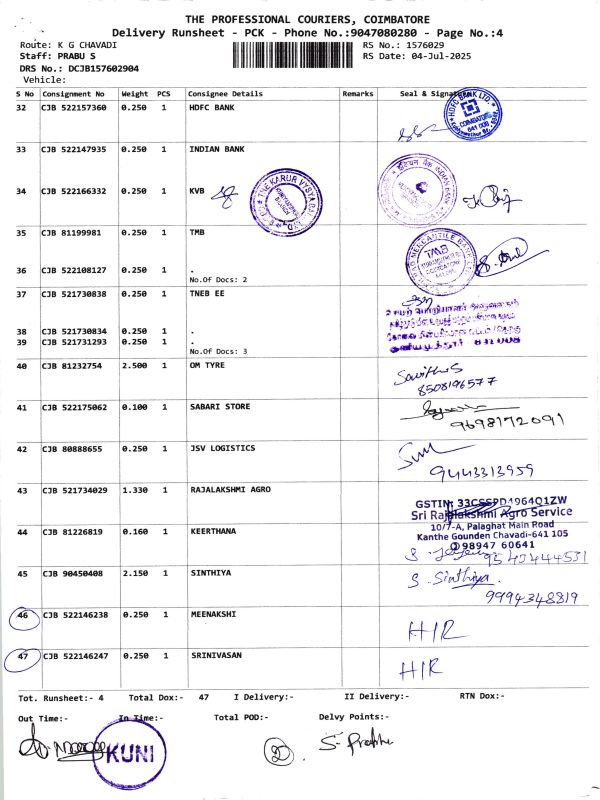 THE PROFESSIONAL COURIERS, COIMBATORE
Delivery Runsheet - PCK - Phone No.:9047080280 - Page No.:4
Route: K G CHAVADI RS No.: 1576029
Staff: PRABU S RS Date: 04-Jul-2025
DRS No.: DCJB157602904
Vehicle:
S No Consignment No Weight PCS Consignee Details Remarks Seal & Signature
32 CJB 522157360 0.250 1 HDFC BANK
HDFC BANK LTD.
COIMBATORE
641 008
33 CJB 522147935 0.250 1 INDIAN BANK
INDIAN BANK
34 CJB 522166332 0.250 1 KVB
THE KARUR VYSYA
35 CJB 81199981 0.250 1 TMB
MERCANTILE BANK
TMB
COIMBATORE
36 CJB 522108127 0.250 1 .
No.Of Docs: 2
37 CJB 521730838 0.250 1 TNEB EE
38 CJB 521730834 0.250 1 .
39 CJB 521731293 0.250 1 .
No.Of Docs: 3
40 CJB 81232754 2.500 1 OM TYRE
Savitha S
8508196577
41 CJB 522175062 0.100 1 SABARI STORE
9698172091
42 CJB 80888655 0.250 1 JSV LOGISTICS
9443313959
43 CJB 521734029 1.330 1 RAJALAKSHMI AGRO
Sri Rajalakshmi Agro Service
10/7-A, Palaghat Main Road
Kanthe Gounden Chavadi-641 105
98947 60641
44 CJB 81226819 0.160 1 KEERTHANA
9543444531
45 CJB 90450408 2.150 1 SINTHIYA
S. Sinthiya
9994348819
46 CJB 522146238 0.250 1 MEENAKSHI
H/R
47 CJB 522146247 0.250 1 SRINIVASAN
H/R
Tot. Runsheet:- 4 Total Dox:- 47 I Delivery:- II Delivery:- RTN Dox:-
Out Time:- In Time:- Total POD:- Delvy Points:-
KUNI
2
S. Prabhu